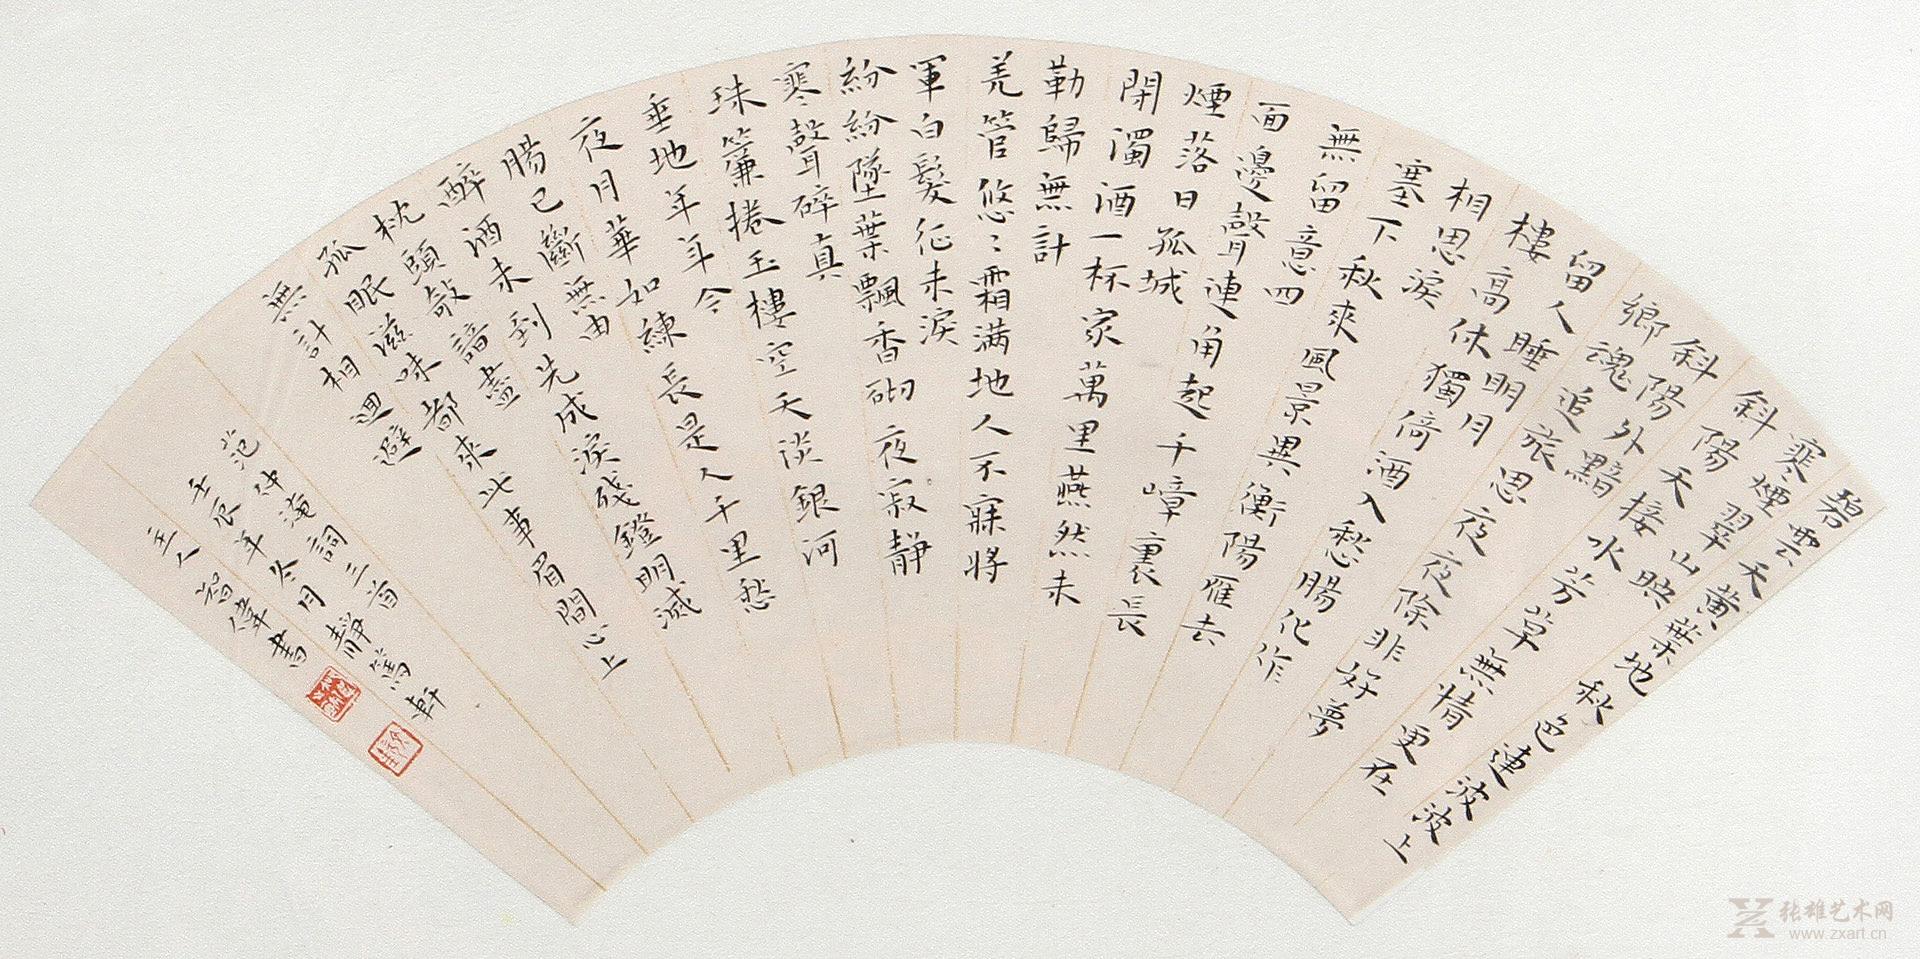 碧雲天黄葉地秋色連波波上
寒煙翠山映
斜陽天接水芳草無情更在
斜陽外黯
鄉魂追旅思夜夜除非好夢
留人睡明月
樓高休獨倚酒入愁腸化作
相思淚
塞下秋來風景異衡陽雁去
無留意四
面邊聲連角起千嶂裏長
煙落日孤城
閉濁酒一杯家萬里燕然未
勒歸無計
羌管悠〻霜满地人不寐將
軍白髮征夫淚
紛紛墜葉飄香砌夜寂靜
寒聲碎真
珠簾捲玉樓空天淡銀河
垂地年年今
夜月華如練長是人千里愁
腸已斷無由
醉酒未到先成淚殘鐙明滅
枕頭敧諳盡
孤眠滋味都來此事眉間心上
無計相迴避
范仲淹詞三首
壬辰年冬月靜篤軒
主人智偉書
张雄艺术网
www.zxart.cn